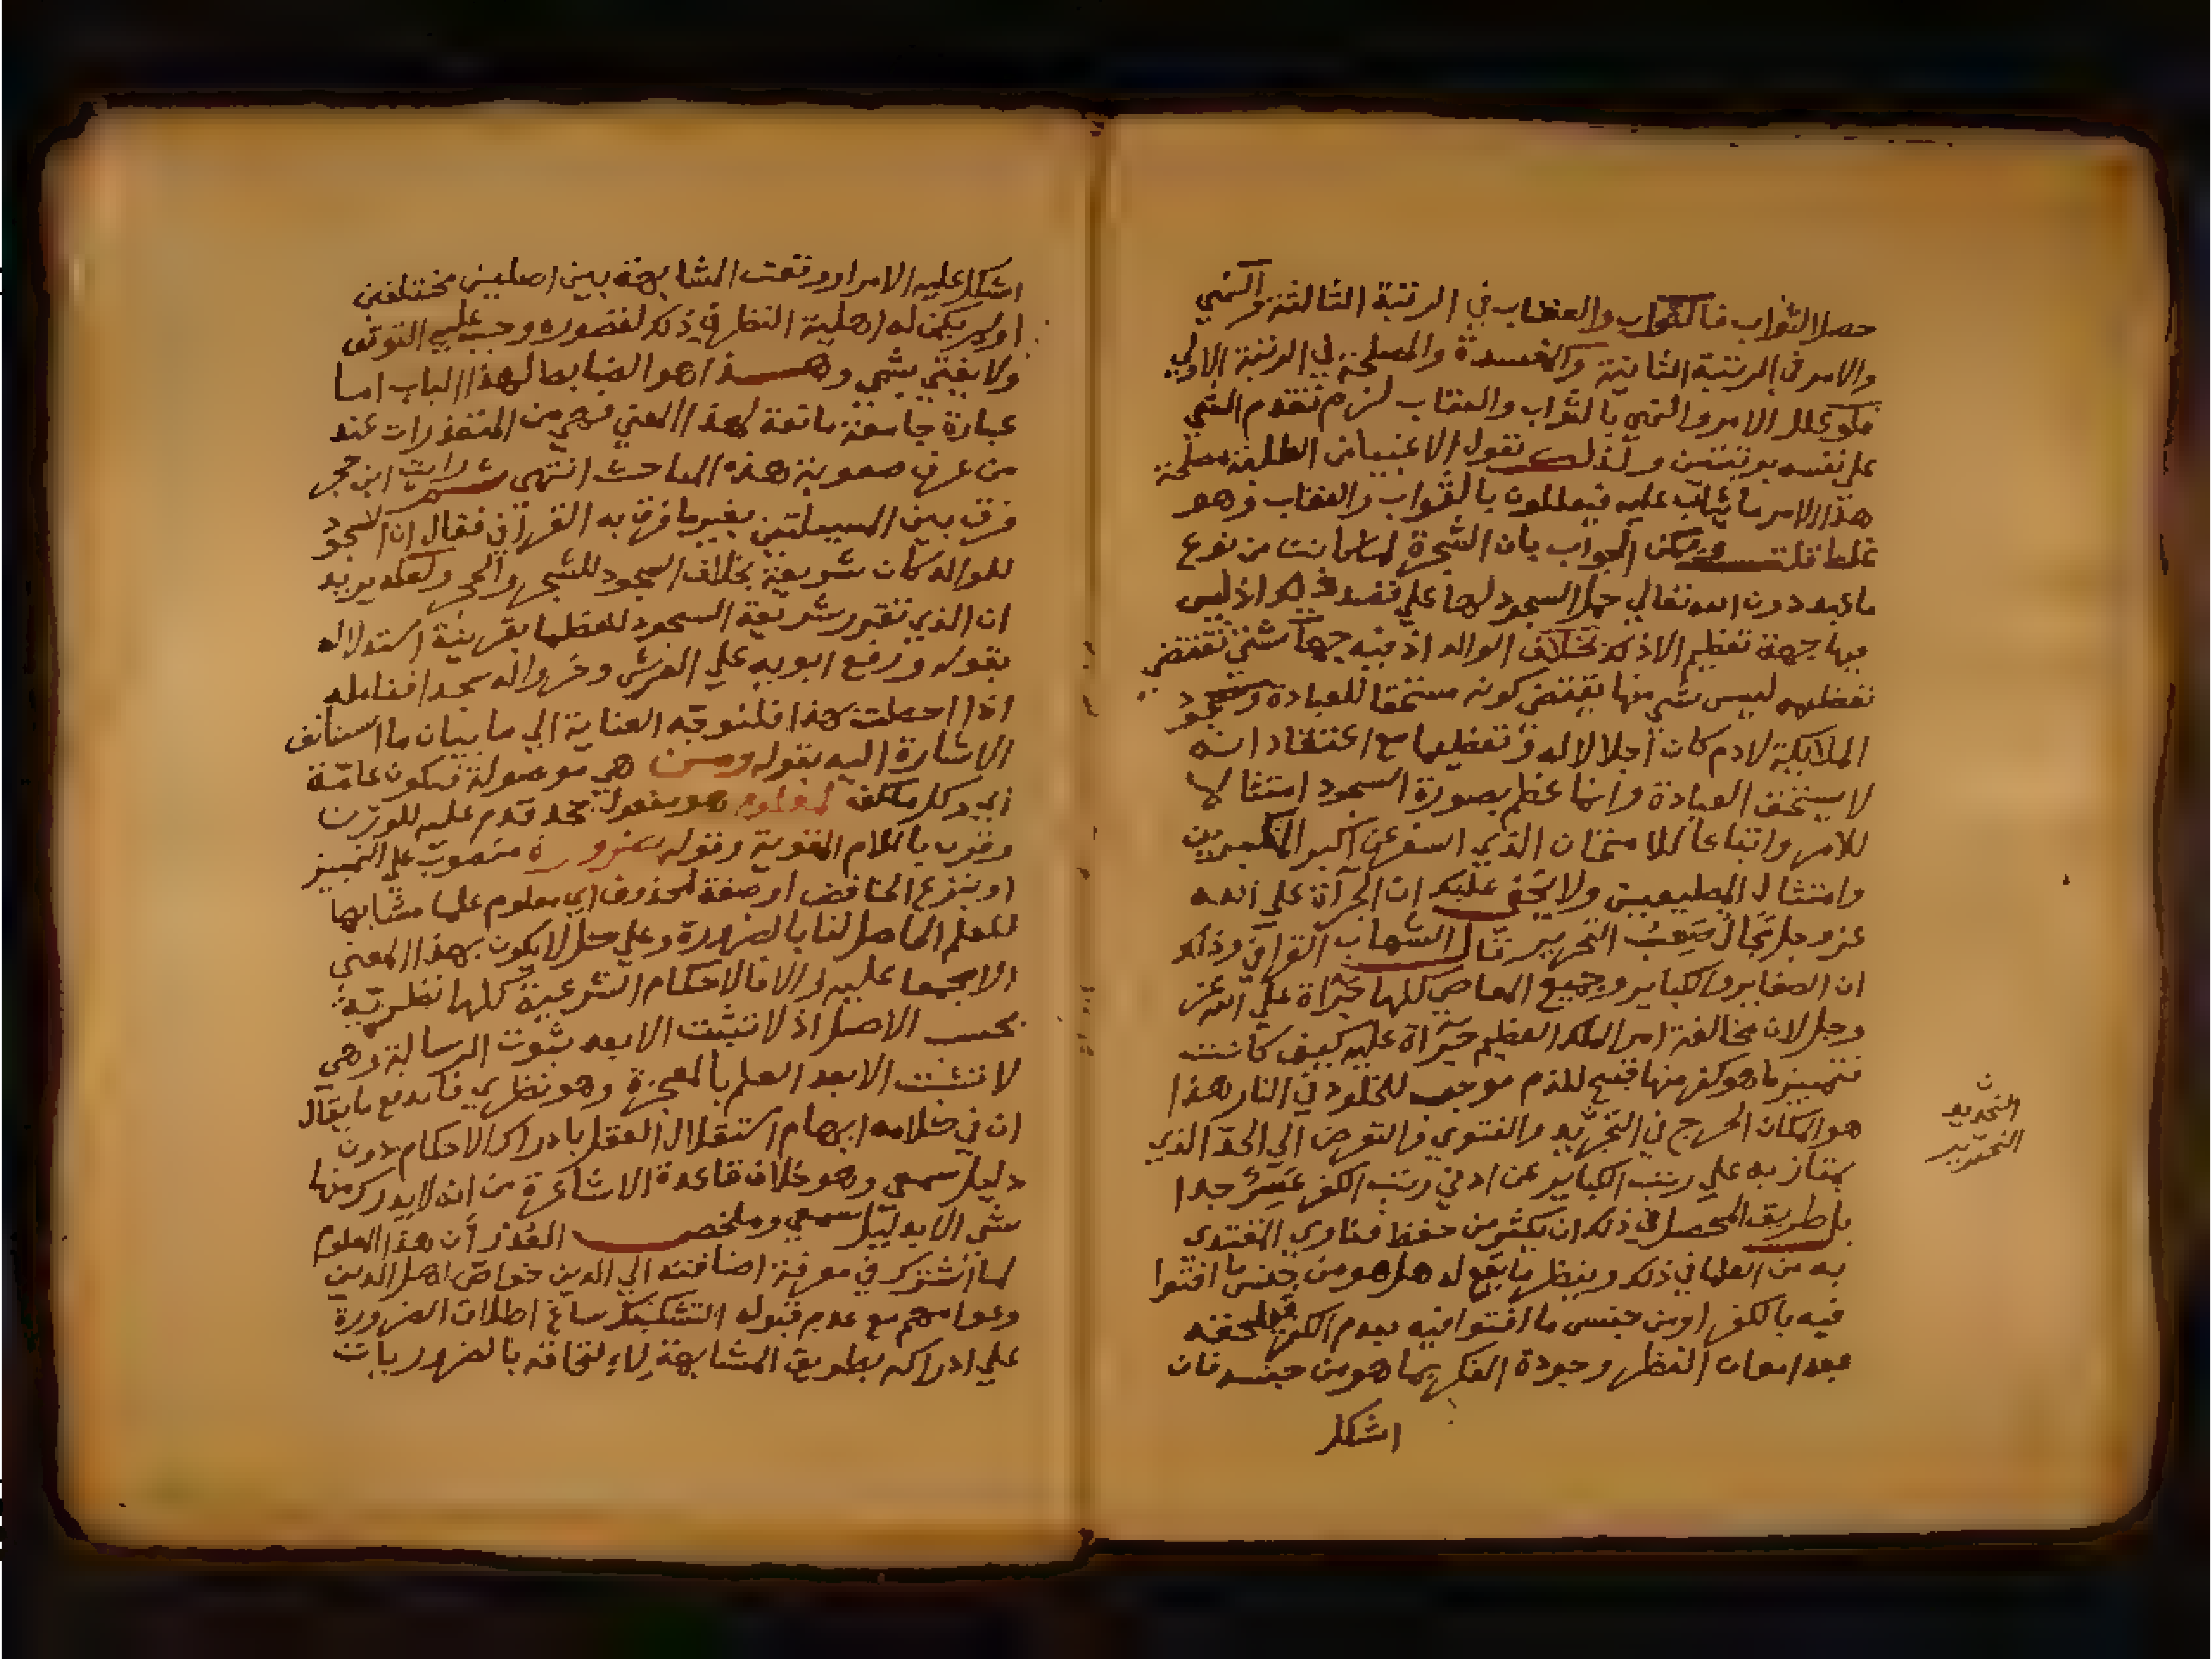 حصل الثواب فالثواب والعقاب في الرتبة الثالثة والنهي
والامر في الرتبة الثانية والمفسدة والمصلحة في الرتبة الاولي
فلو علل الامر والنهي بالثواب والعقاب لزم تقدم الشي
علي نفسه برتبتين ولذلك تقول الاغبيا من الطلبة مصلحة
هذا الامر ما يثاب عليه فيعللون بالثواب والعقاب وهو
غلط قلت ويمكن الجواب بان الشجرة لما كانت من نوع
ما عبد دون الله تعالي حمل السجود لها علي قصد ذلك اذ ليس
فيها جهة تعظيم الا ذلك بخلاف الوالد اذ فيه جهات شتي تقتضي
تعظيمه ليس شي منها يقتضي كونه مستحقا للعبادة وسجود
الملايكة لادم كان اجلالا له وتعظيما مع اعتقاد انه
لا يستحق العبادة وانما عظم بصورة السجود امتثالا
للامر واتباعا للامتحان الذي اسفر عن اكبر المتكبرين
وامتثال المطيعين ولا يخفي عليك ان الجرآة علي الله
عز وجل مجال صعب التحرير قال الشهاب القرافي وذلك
ان الصغاير والكباير وجميع المعاصي كلها جرآة علي الله عز
وجل لان مخالفة امر الملك العظيم جرآة عليه كيف كانت
فتمييز ما هو كفر منها قبيح للذم موجب للخلود في النار هذا
هو المكان الحرج في التحريد والفتوي والتعرض الي الحد الذي
يمتاز به علي رتب الكباير عن ادني رتب الكفر عسر جدا
بل طريق المحصل في ذلك ان يكثر من حفظ فتاوي المقتدي
به من العلما في ذلك وينظر ما يقع له هل هو من جنس ما افتوا
فيه بالكفر او من جنس ما افتوا فيه بعدم الكفر فيلحقه
بعد امعان النظر وجودة الفكر بما هو من جنسه فان
اشكل
ن
التحديد
التحرير
اشكل عليه الامر او وقعت المشابهة بين اصلين مختلفين
او لم يكن له اهلية النظر في ذلك لقصوره وجب عليه التوقف
ولا يفتي بشي وهذا هو الضابط لهذا الباب اما
عبارة جامعة مانعة لهذا المعني فهي من المتعذرات عند
من عرف صعوبة هذه المباحث انتهي ثم رايت ابن حجر
فرق بين المسيلتين بغير ما فرق به القرافي فقال ان السجود
للوالد كان شريعة بخلاف السجود للشجر والحجر ولعله يريد
ان الذي تقرر شريعة السجود للعظما بقرينة استدلاله
بقوله ورفع ابويه علي العرش وخروا له سجدا فتامله
اذا احطت بهذا فلنوجه العناية الي ما بيان ما استانف
الاشارة اليه بقوله ومن هي موصولة فيكون عامة
اي وكل مكلف لمعلوم هو مفعول جحد قدم عليه للوزن
وقرن باللام المقوية وقوله ضرورة منصوب علي التمييز
او بنزع الخافض او صفة لمحذوف اي معلوم علما مشابها
للعلم الحاصل لنا بالضرورة وعلي كل لا يكون بهذا المعني
الا مجمعا عليه والا فالاحكام الشرعية كلها نظرية
بحسب الاصل اذ لا تثبت الا بعد ثبوت الرسالة وهي
لا تثبت الا بعد العلم بالمعجزة وهو نظري فاندفع ما يقال
ان في كلامه ايهام استقلال العقل بادراك الاحكام دون
دليل سمعي وهو خلاف قاعدة الاشاعرة من انه لا يدرك منها
شي الا بدليل سمعي وملخص العذر أن هذا العلوم
لما اشترك في معرفة اضافته الي الدين خواص اهل الدين
وعوامهم مع عدم قبوله التشكيك ساغ اطلاق الضرورة
علي ادراكه بطريق المشابهة لالتحاقه بالضروريات